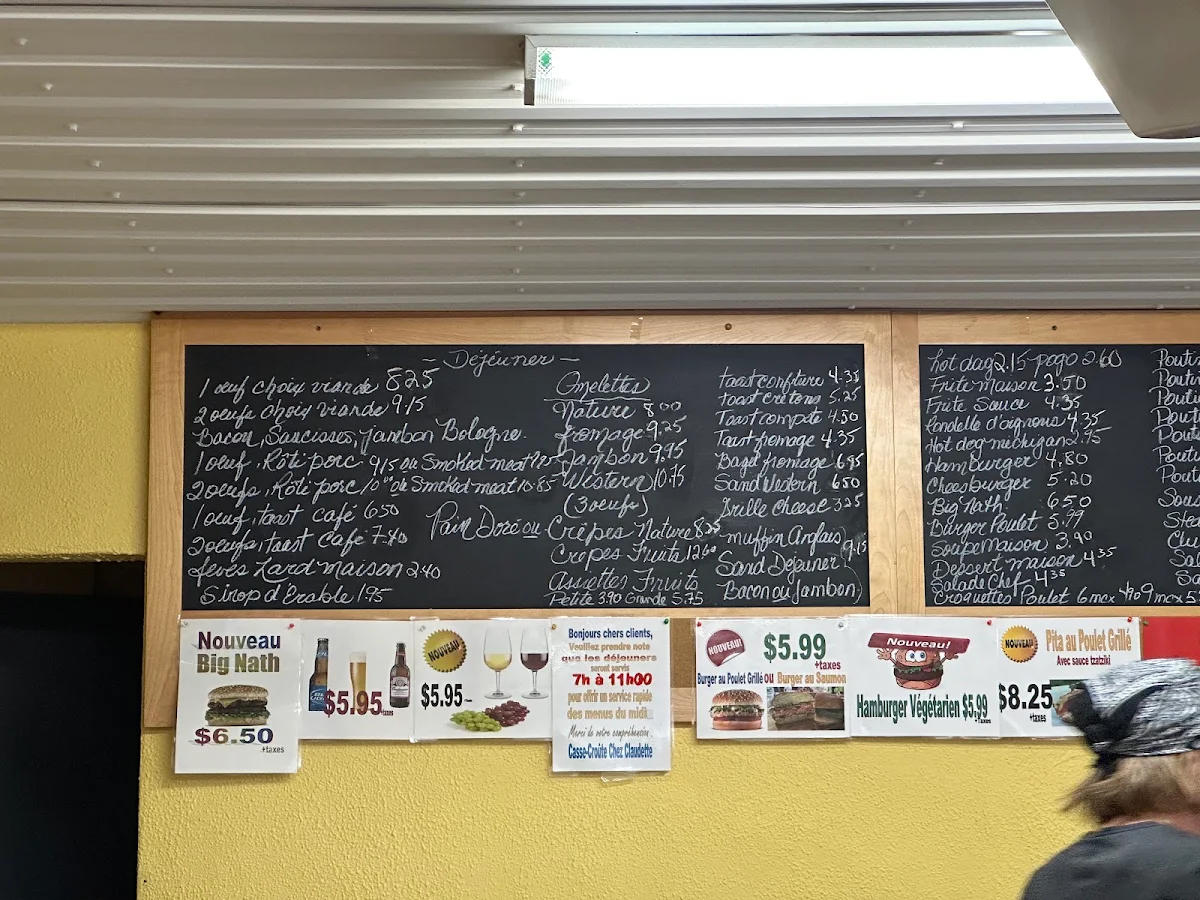 - Déjeuner -
1 oeuf choix viande 8.25
2 oeufs choix viande 9.15
Bacon, Saucisses, Jambon Bologne.
1 oeuf, Rôti porc 9.15 ou Smoked meat
2 oeufs, Rôti porc 10 ou Smoked meat 10.85
1 oeuf, toast café 6.50
2 oeufs, toast café 7.40
fèves Lard maison 2.40
Sirop d'Erable 1.95
Omelettes
Nature 8.00
fromage 9.25
Jambon 9.75
Western 10.75
(3 oeufs)
Pain Doré ou Crêpes Nature 8.25
Crêpes Fruits 12.60
Assiettes Fruits
Petite 3.90 Grande 5.75
toast confiture 4.35
toast cretons 5.25
Toast compote 4.50
Toast fromage 4.35
Bagel fromage 6.95
Sand Western 6.50
Grille cheese 3.25
muffin Anglais
Sand Déjeuner 9.15
Bacon ou Jambon
hot dog 2.15 pogo 2.60
Frite maison 3.50
Frite Sauce 4.35
Rondelle d'oignons 4.35
Hot dog michigan 2.75
Hamburger 4.80
Cheesburger 5.20
Big Nath 6.50
Burger Poulet 5.99
Soupe Maison 3.90
Dessert maison 4.35
Salade Chef 4.35
Croquettes Poulet 6 mcx 9 mcx
Pouti
Pouti
Pouti
Pout
Pout
Pout
Pout
Nouveau
Big Nath
$6.50
+taxes
$5.95
+taxes
NOUVEAU
$5.95
Bonjours chers clients,
Veuillez prendre note
que les déjeuners
seront servis
7h à 11h00
pour offrir un service rapide
des menus du midi.
Merci de votre compréhension
Casse-Croûte Chez Claudette
NOUVEAU!
$5.99
+taxes
Burger au Poulet Grillé ou Burger au Saumon
Nouveau!
Hamburger Végétarien $5.99
+taxes
NOUVEAU
Pita au Poulet Grillé
Avec sauce tzatziki
$8.25
+taxes